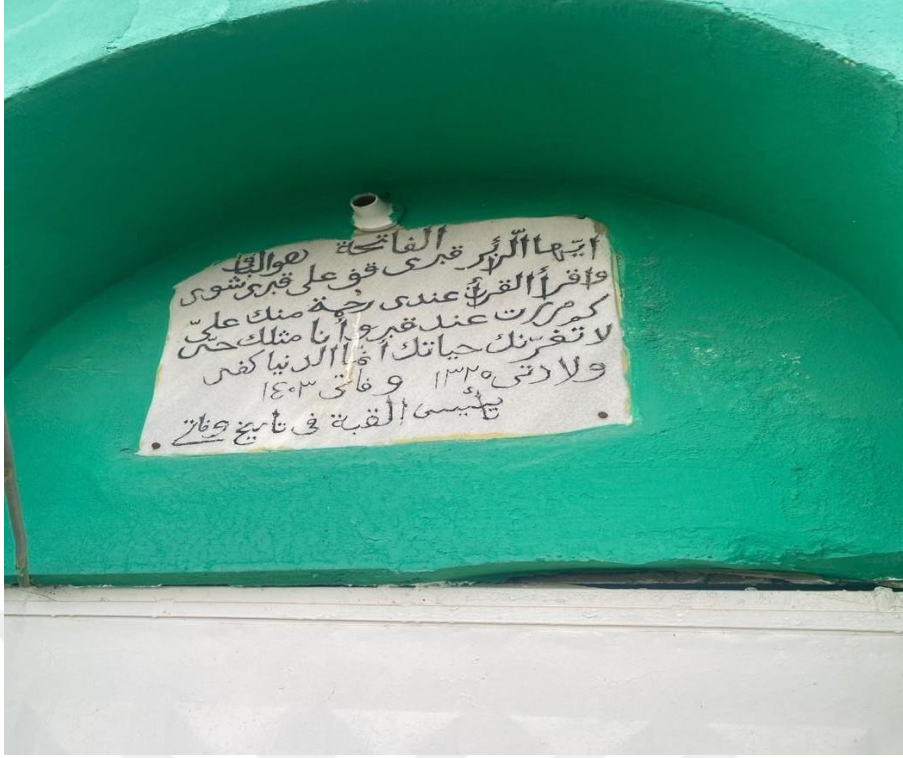 الفاتحة هوالباقى
ايّها الزّائر قبرى قف على قبرى شوى
واقرأ القرأن عندى رحمة منك علىّ
كم مررت عند قبر وأنا مثلك حىّ
لا تغرّنك حياتك أنما الدنيا كفى
ولادتى ١٣٢٥ وفاتى ١٤٠٣
القبة فى تاريخ وفاتى